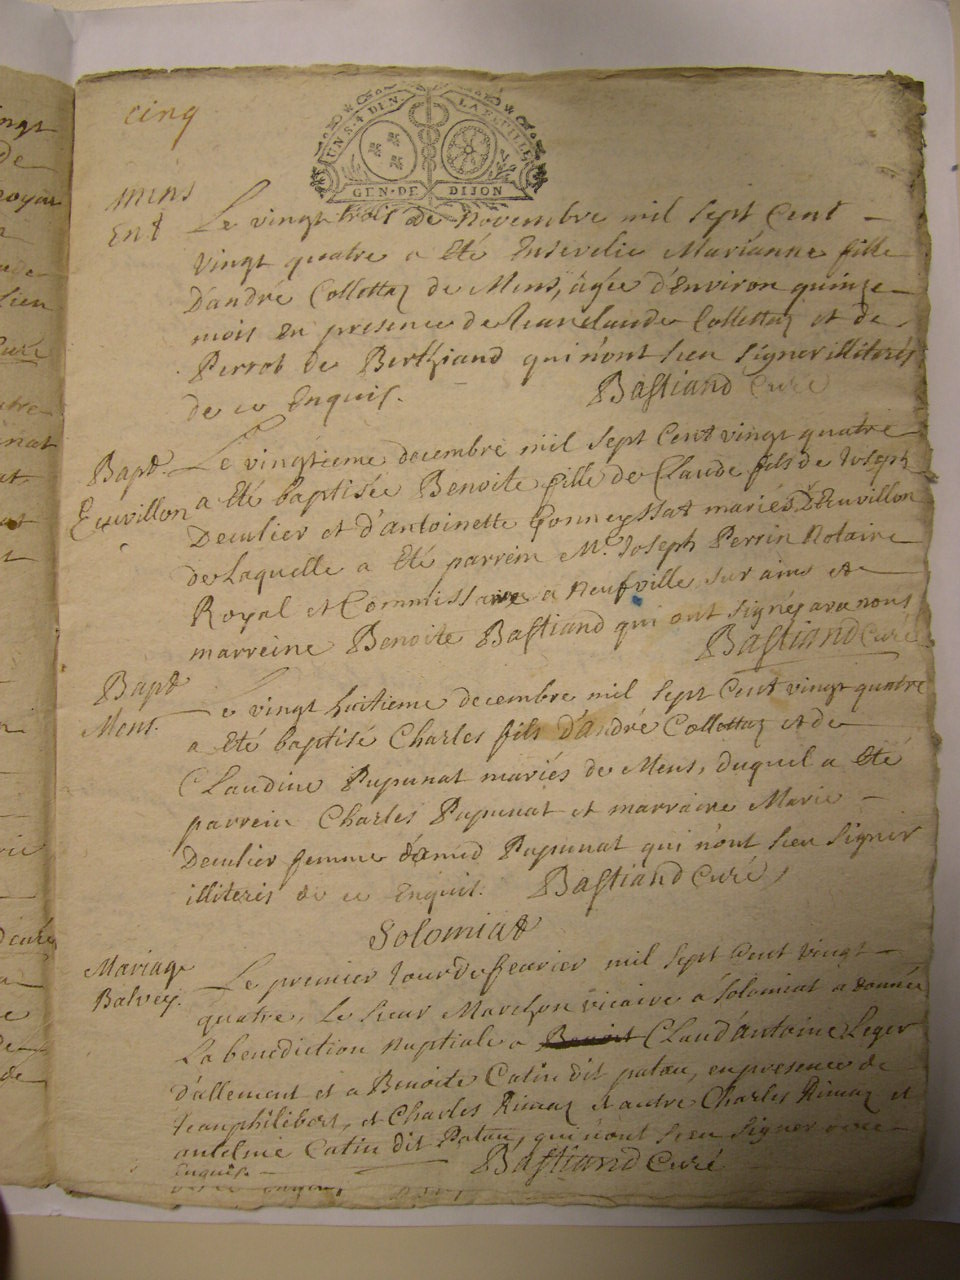 cinq
UN.S.4 DEN LA FEUILLE
GEN.DE DIJON
Mens
Ent
Le vingt trois de Novembre mil sept Cent
vingt quatre a Eté Ensevelie Marianne fille
D'andré Collettaz de Mens, agée d'Environ quinze
mois En presence de Jean claude Collettaz et de
Perrot de Berthiand qui n'ont sceu signer illiterés
de ce Enquis. Bastiand Curé
Bapt
Euvillon
Le vingtieme decembre mil sept Cent vingt quatre
a Eté baptisée Benoite fille de Claude fils de Joseph
Deculier et d'antoinette Gonneyssat mariés D'Euvillon
de Laquelle a Eté parrein Mr. Joseph Perrin Notaire
Royal et Commissaire a Neufville sur ains et
marreine Benoite Bastiand qui ont signés avec nous
Bastiand Curé
Bapt
Mens.
Le vingt huitieme decembre mil sept Cent vingt quatre
a Eté baptisé Charles fils d'andré Collettaz et de
Claudine Pupunat mariés de Mens, duquel a Eté
parrein Charles Pupunat et marraire Marie
Deculier femme Pupunat qui n'ont sceu signer
illiterés de ce Enquis. Bastiand Curé
Solomiat
Mariage
Balvey.
Le premier Jour de feuvrier mil sept Cent vingt
quatre, Le sieur vicaire a Solomiat a donnée
La benediction nuptiale a Benoit Claud'antoine Leger
D'allement et a Benoite Catin dit patau, en presence de
Jeanphilibert, et Charles Rimaz et autre Charles Rimaz et
antelme Catin dit Patau, qui n'ont sceu signer
Enquis. Bastiand Curé